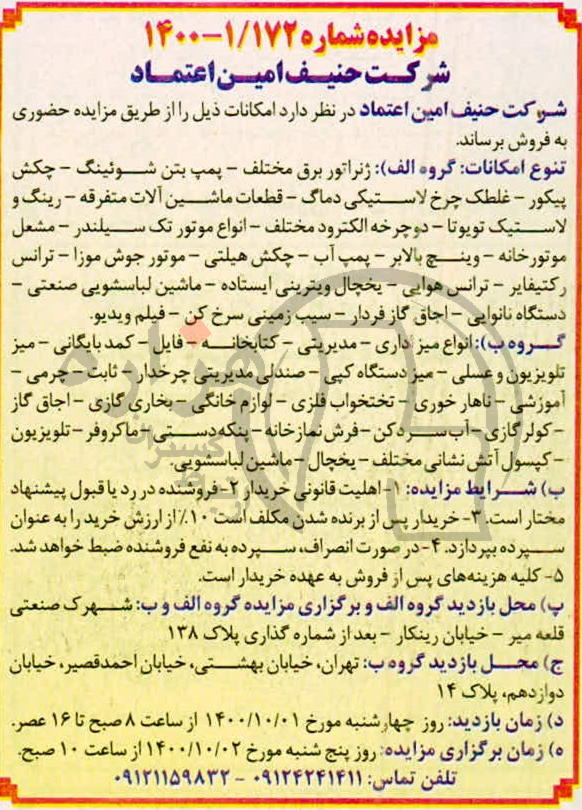 مزایده شماره ۱/۱۷۲-۱۴۰۰
شرکت حنیف امین اعتماد
شرکت حنیف امین اعتماد در نظر دارد امکانات ذیل را از طریق مزایده حضوری
به فروش برساند.
تنوع امکانات: گروه الف): ژنراتور برق مختلف – پمپ بتن شوئینگ – چکش
پیکور – غلطک چرخ لاستیکی دماگ – قطعات ماشین آلات متفرقه – رینگ و
لاستیک تویوتا – دوچرخه الکترود مختلف – انواع موتور تک سیلندر – مشعل
موتورخانه – وینچ بالابر – پمپ آب – چکش هیلتی – موتور جوش موزا – ترانس
رکتیفایر – ترانس هوایی – یخچال ویترینی ایستاده – ماشین لباسشویی صنعتی –
دستگاه نانوایی – اجاق گاز فردار – سیب زمینی سرخ کن – فیلم ویدیو.
گروه ب): انواع میز اداری – مدیریتی – کتابخانه – فایل – کمد بایگانی – میز
تلویزیون و عسلی – میز دستگاه کپی – صندلی مدیریتی چرخدار – ثابت – چرمی –
آموزشی – ناهار خوری – تختخواب فلزی – لوازم خانگی – بخاری گازی – اجاق گاز
– کولر گازی – آب سرد کن – فرش نمازخانه – پنکه دستی – ماکروفر – تلویزیون
– کپسول آتش نشانی مختلف – یخچال – ماشین لباسشویی.
ب) شرایط مزایده: ۱- اهلیت قانونی خریدار ۲- فروشنده در رد یا قبول پیشنهاد
مختار است. ۳- خریدار پس از برنده شدن مکلف است ۱۰٪ از ارزش خرید را به عنوان
سپرده بپردازد. ۴- در صورت انصراف، سپرده به نفع فروشنده ضبط خواهد شد.
۵- کلیه هزینه‌های پس از فروش به عهده خریدار است.
پ) محل بازدید گروه الف و برگزاری مزایده گروه الف و ب: شهرک صنعتی
قلعه میر – خیابان رینکار – بعد از شماره گذاری پلاک ۱۳۸
ج) محل بازدید گروه ب: تهران، خیابان بهشتی، خیابان احمدقصیر، خیابان
دوازدهم، پلاک ۱۴
د) زمان بازدید: روز چهارشنبه مورخ ۱۴۰۰/۱۰/۰۱ از ساعت ۸ صبح تا ۱۶ عصر.
ه) زمان برگزاری مزایده: روز پنج شنبه مورخ ۱۴۰۰/۱۰/۰۲ از ساعت ۱۰ صبح.
تلفن تماس: ۰۹۱۲۴۲۴۱۴۱۱ – ۰۹۱۲۱۱۵۹۸۳۲